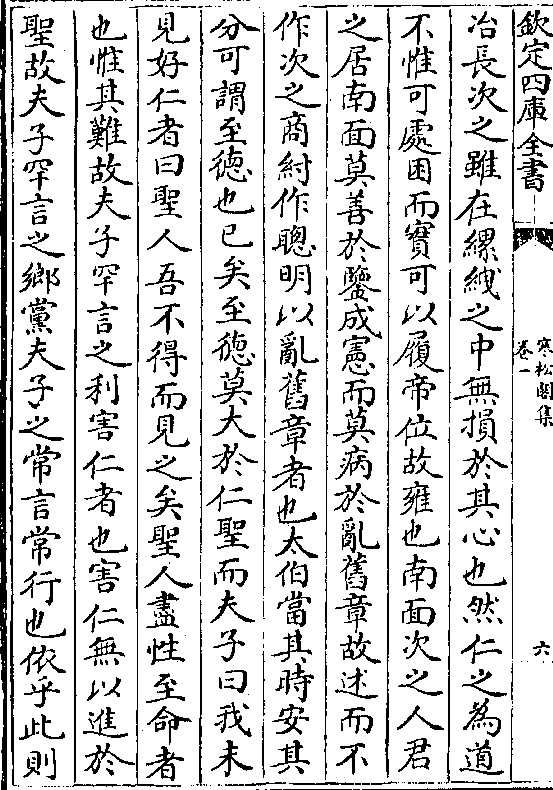 欽定四庫全書
寒松閣集
卷一
六
冶長次之雖在縲絏之中無損於其心也然仁之為道
不惟可處困而實可以履帝位故雍也南面次之人君
之居南面莫善於鑒成憲而莫病於亂舊章故述而不
作次之商紂作聰明以亂舊章者也太伯當其時安其
分可謂至徳也已矣至徳莫大於仁聖而夫子曰我未
見好仁者曰聖人吾不得而見之矣聖人盡性至命者
也惟其難故夫子罕言之利害仁者也害仁無以進於
聖故夫子罕言之鄉黨夫子之常言常行也依乎此則